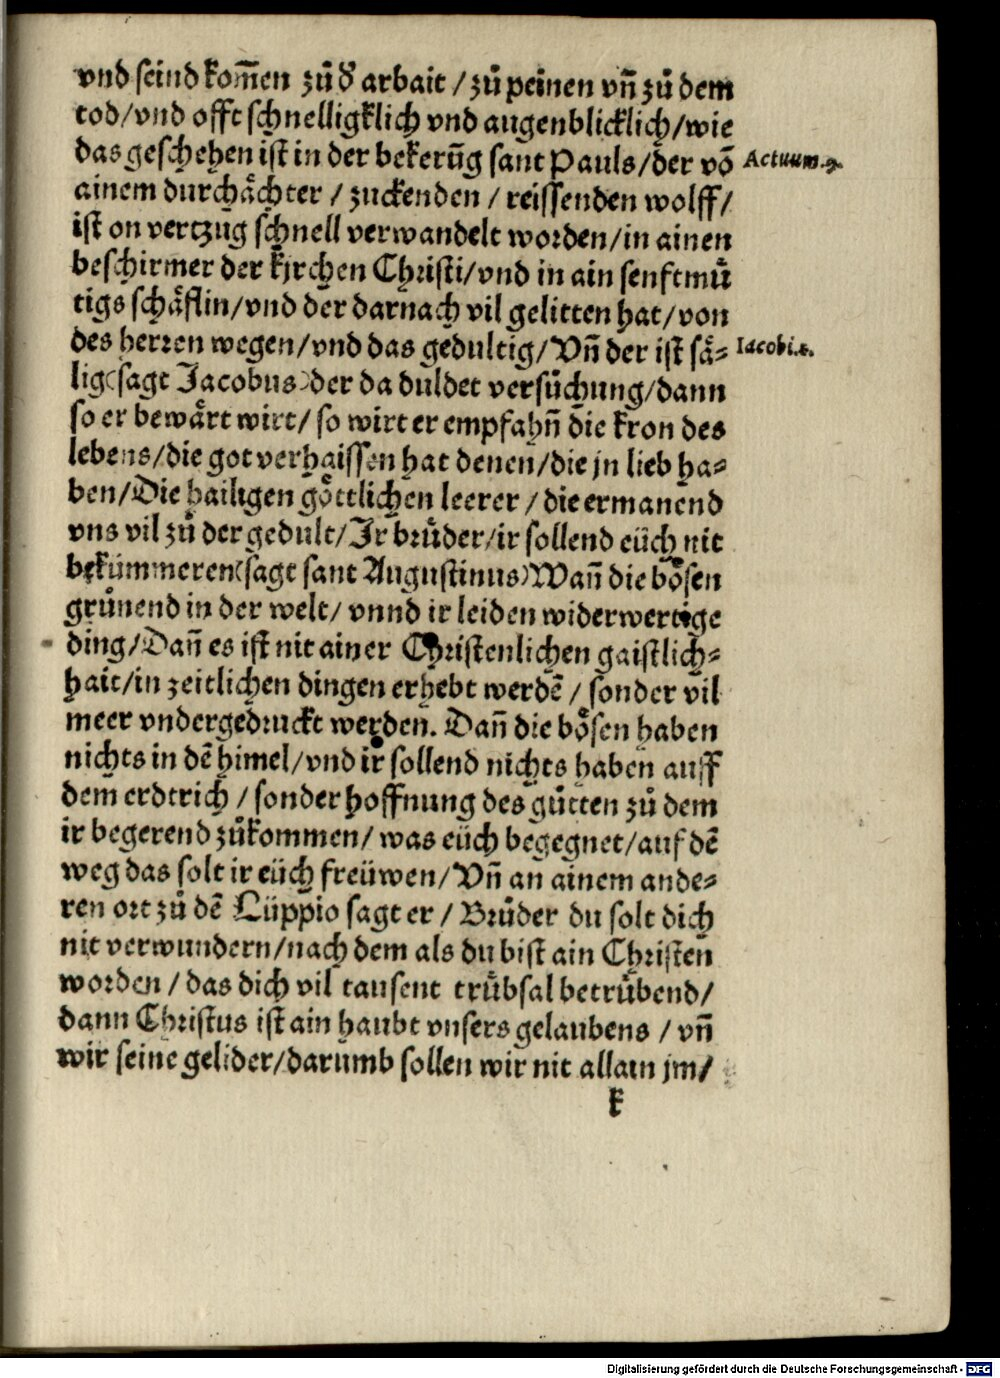 vnd seind kom̃en zů d᷑ arbait / zů peinen vñ zů dem
tod/vnd offt schnelligklich vnd augenblicklich/wie
das geschehen ist in der bekerũg sant Pauls/der võ
Actuum.9.
ainem durchaͤchter / zuckenden / reissenden wolff/
ist on vertzug schnell verwandelt worden/in ainen
beschirmer der kjrchen Christi/vnd in ain senftmuͤ
tigs schaͤflin/vnd der darnach vil gelitten hat/von
des herren wegen/vnd das gedultig/Vñ der ist saͤ⸗
Iacobi.1.
lig(sagt Jacobus)der da duldet versůchung/dann
so er bewaͤrt wirt/ so wirt er empfahñ die kron des
lebens/die got verhaissen hat denen/die jn lieb ha⸗
ben/Die hailigen goͤttlichen leerer / die ermanend
vns vil zů der gedult/Ir bruͤder/ir sollend eüch nit
bekümmeren(sagt sant Augustinus)Wañ die boͤsen
gruͤnend in der welt/ vnnd ir leiden widerwertige
ding/Dañ es ist nit ainer Christenlichen gaistlich⸗
hait/in zeitlichen dingen erhebt werdẽ / sonder vil
meer vndergedruckt werden. Dañ die boͤsen haben
nichts in dẽ himel/vnd ir sollend nichts haben auff
dem erdtrich / sonder hoffnung des guͤtten zů dem
ir begerend zůkommen/ was eüch begegnet/auf dẽ
weg das solt ir eüch freüwen/Vñ an ainem ande⸗
ren ort zů dẽ Lüppio sagt er / Bruͤder du solt dich
nit verwundern/nach dem als du bist ain Christen
worden / das dich vil tausent truͤbsal betruͤbend/
dann Christus ist ain haubt vnsers gelaubens / vñ
wir seine gelider/darumb sollen wir nit allain jm/
k
Digitalisierung gefördert durch die Deutsche Forschungsgemeinschaft - DFG